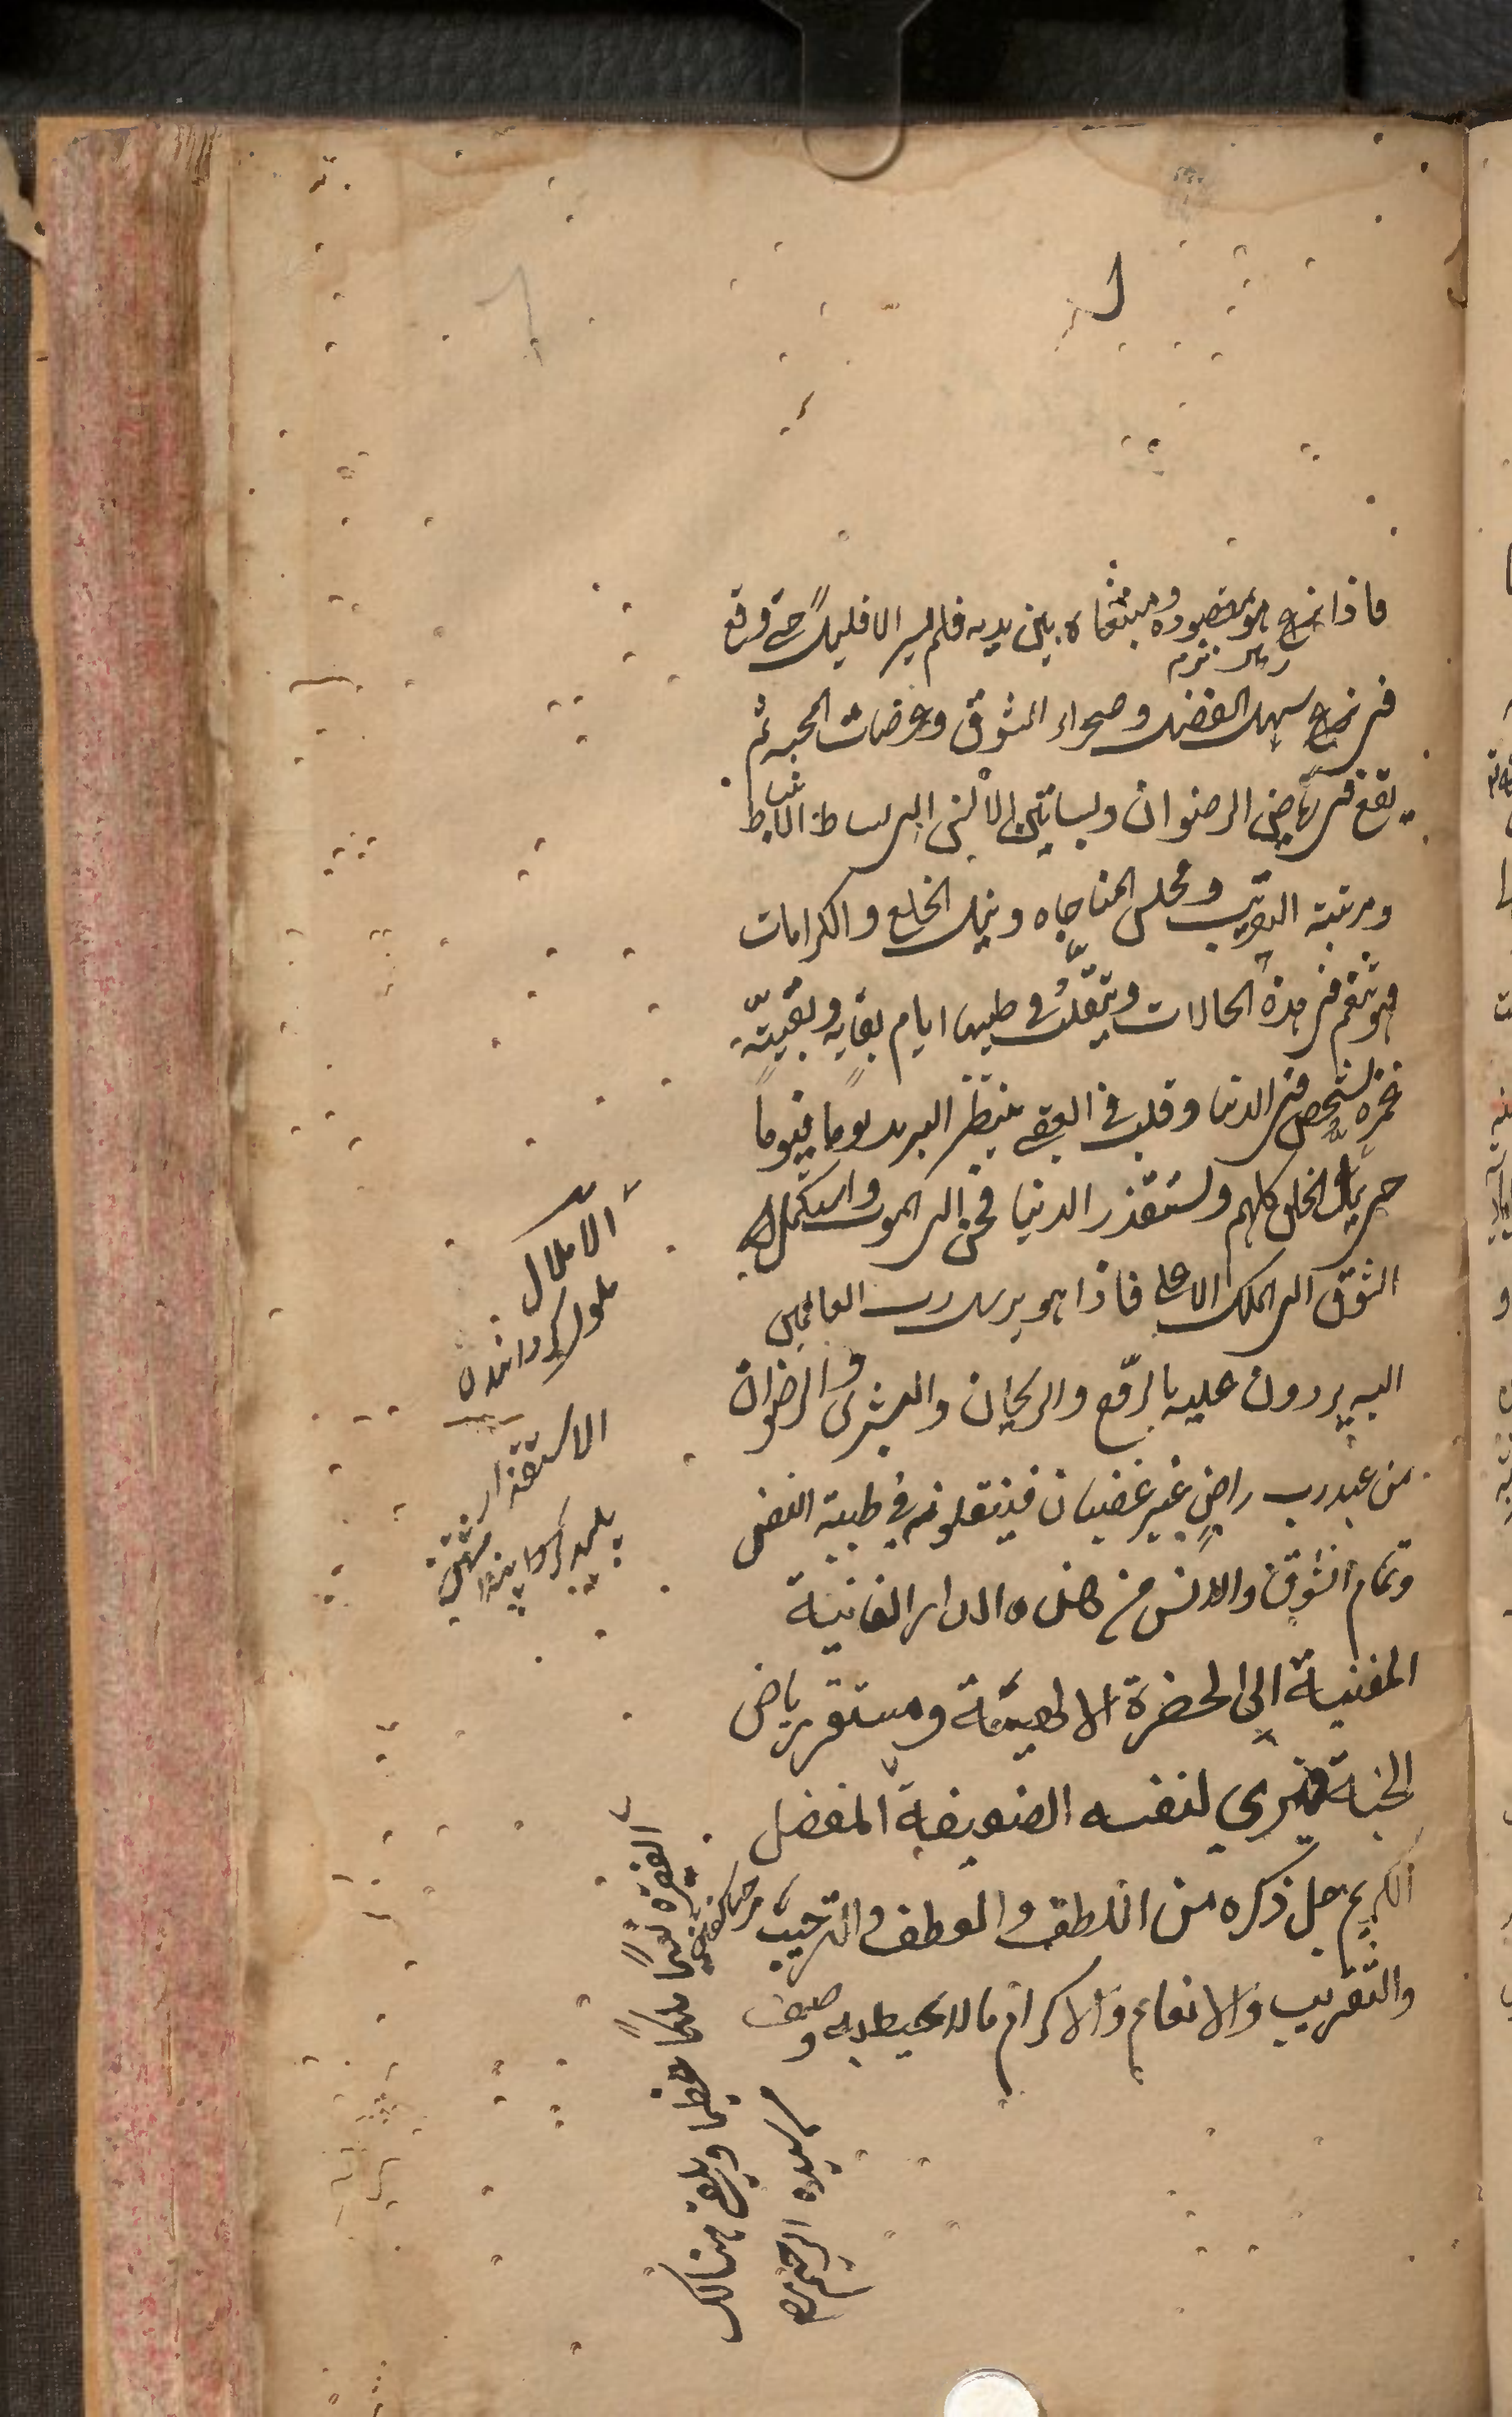 فاذا نهج هو مقصوده ومبتغاه بين يديه فلم يسر الا قليلاً حتى وقع
في نهج سهل الفضل وصحراء الشوق وعرصات المحبه ثم
يقع في رياض الرضوان وبساتين الانس الى بساط الانبساط
ومرتبة التقريب ومجلس المناجاه ونيل الخلع والكرامات
فهو يتنعم في هذه الحالات ويتقلب في طيبها ايام بقايه وبقية
عمره بشخص في الدنيا وقلب في العقبى ينتظر البريد يوماً فيوماً
حتى يمل الخلق كلهم ويستقذر الدنيا فحن الى الموت واستكمل
الشوق الى الملك الاعلى فاذا هو برسل رب العالمين
اليه يردون عليه بالروح والريحان والبشرى والرضوان
من عند رب راضٍ غير غضبان فينقلونه في طيبة النفس
وتمام الشوق والانس من هذه الدار الفانية
المفنية الى الحضرة الالهية ومستقر رياض
الجنة فيرى لنفسه الضعيفة المفضل
الكريم جل ذكره من اللطف والعطف والترحيب
والتقريب والانعام والاكرام ما لا يحيط به وصف
الاملال
ملول كردانيدن
الاستقذار
پليد
الفقيرة نعيماً وملكاً عظيما ويلقى هنالك
من سيده الرحيم